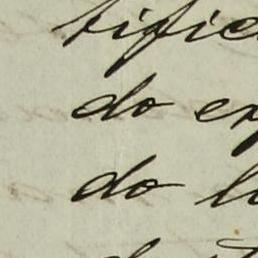 tific
do ex
do l